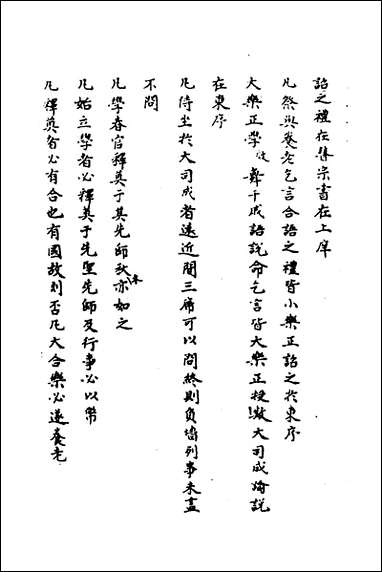 詔之禮在瞽宗書在上庠
凡祭與養老乞言合語之禮皆小樂正詔之於東序
大樂正學效舞干戚語說命乞言皆大樂正授數大司成論說
在東序
凡侍坐於大司成者遠近間三席可以問終則負墻列事未盡
不問
凡學春官釋奠于其先師秋冬亦如之
凡始立學者必釋奠于先聖先師及行事必以幣
凡釋奠者必有合也有國故則否凡大合樂必遂養老